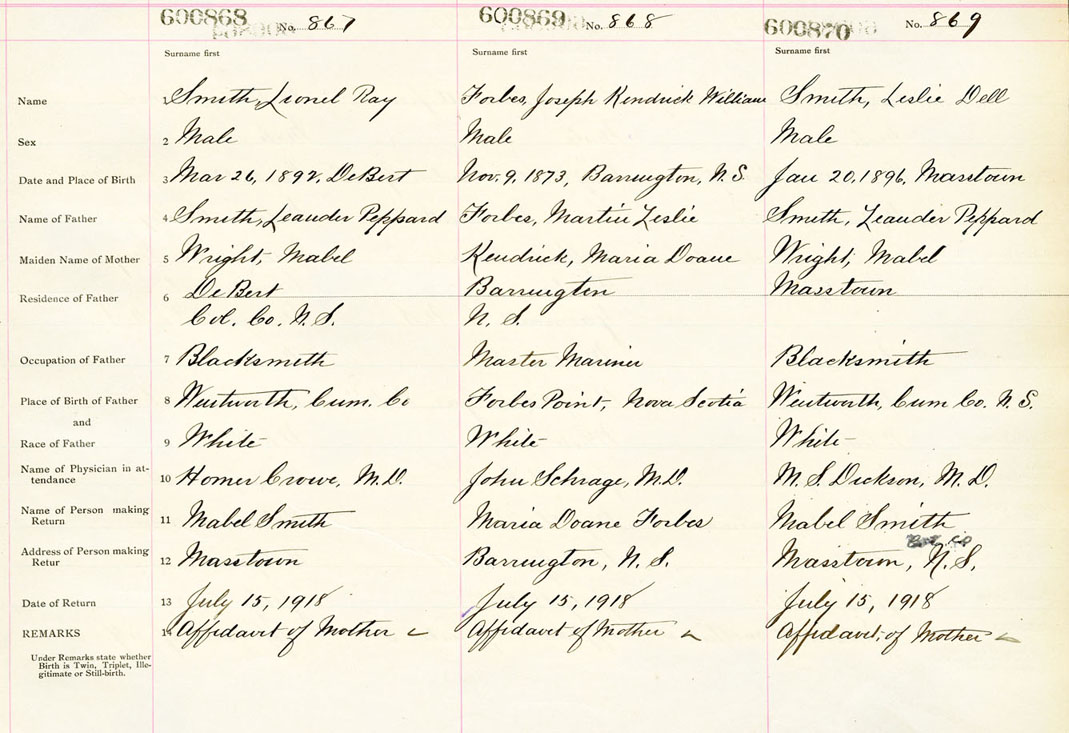 600868 No. 867 600869 No. 868 600870 No. 869
Surname first Surname first Surname first
Name 1 Smith, Lionel Ray Forbes, Joseph Kendrick William Smith, Leslie Dell
Sex 2 Male Male Male
Date and Place of Birth 3 Mar 26, 1892, DeBert Nov. 9, 1873, Barrington, N.S. Jan 20, 1896, Masstown
Name of Father 4 Smith, Leander Peppard Forbes, Martin Leslie Smith, Leander Peppard
Maiden Name of Mother 5 Wright, Mabel Kendrick, Maria Doane Wright, Mabel
Residence of Father 6 DeBert Barrington Masstown
Col. Co. N.S. N. S.
Occupation of Father 7 Blacksmith Master Mariner Blacksmith
Place of Birth of Father 8 Wentworth, Cum. Co Forbes Point, Nova Scotia Wentworth, Cum Co. N. S.
and
Race of Father 9 White White White
Name of Physician in at-
tendance 10 Homer Crowe, M.D. John Schrage, M.D. M. S. Dickson, M. D.
Name of Person making
Return 11 Mabel Smith Maria Doane Forbes Mabel Smith
Address of Person making
Retur 12 Masstown Barrington, N. S. Masstown, N. S.
Date of Return 13 July 15, 1918 July 15, 1918 July 15, 1918
REMARKS 14 Affidavit of Mother Affidavit of Mother Affidavit of Mother
Under Remarks state whether
Birth is Twin, Triplet, Ille-
gitimate or Still-birth.